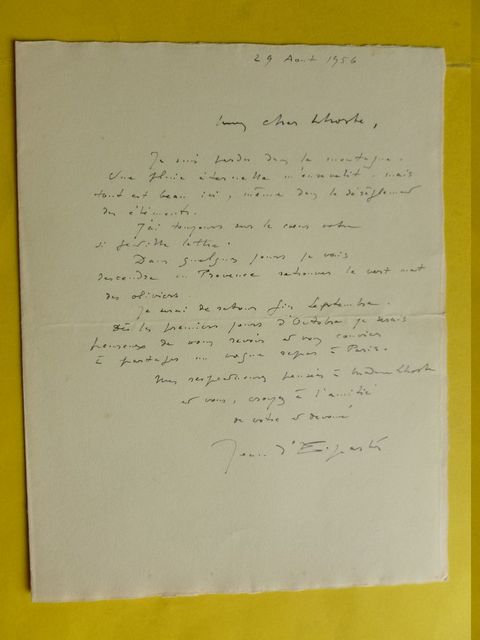 29 Aout 1956
Mon cher Lhoste,
Je suis perdu dans la montagne.
Une pluie éternelle m'ensevelit. mais
tout est beau ici, même dans le dérèglement
des éléments.
J'ai toujours sur le cœur votre
si gentille lettre.
Dans quelques jours je vais
descendre en Provence retrouver le vert mat
des oliviers.
Je serai de retour fin Septembre.
Dès les premiers jours d'Octobre je serais
heureux de vous revoir et vous convier
à partager un vague repas à Paris.
Mes respectueuses pensées à Madame Lhoste
et vous, croyez à l'amitié
de votre et dévoué
Jean d'